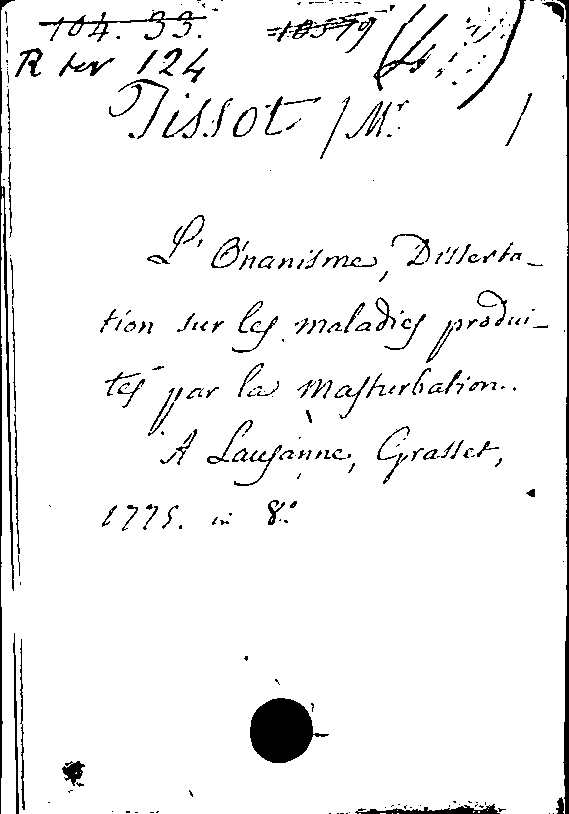 104. 33. 10579
R ter 124
Tissot / Mr. /
L'Onanisme, Disserta-
tion sur les maladies produi-
tes par la Masturbation.
A Lausanne, Grasset,
1775. in 8.o